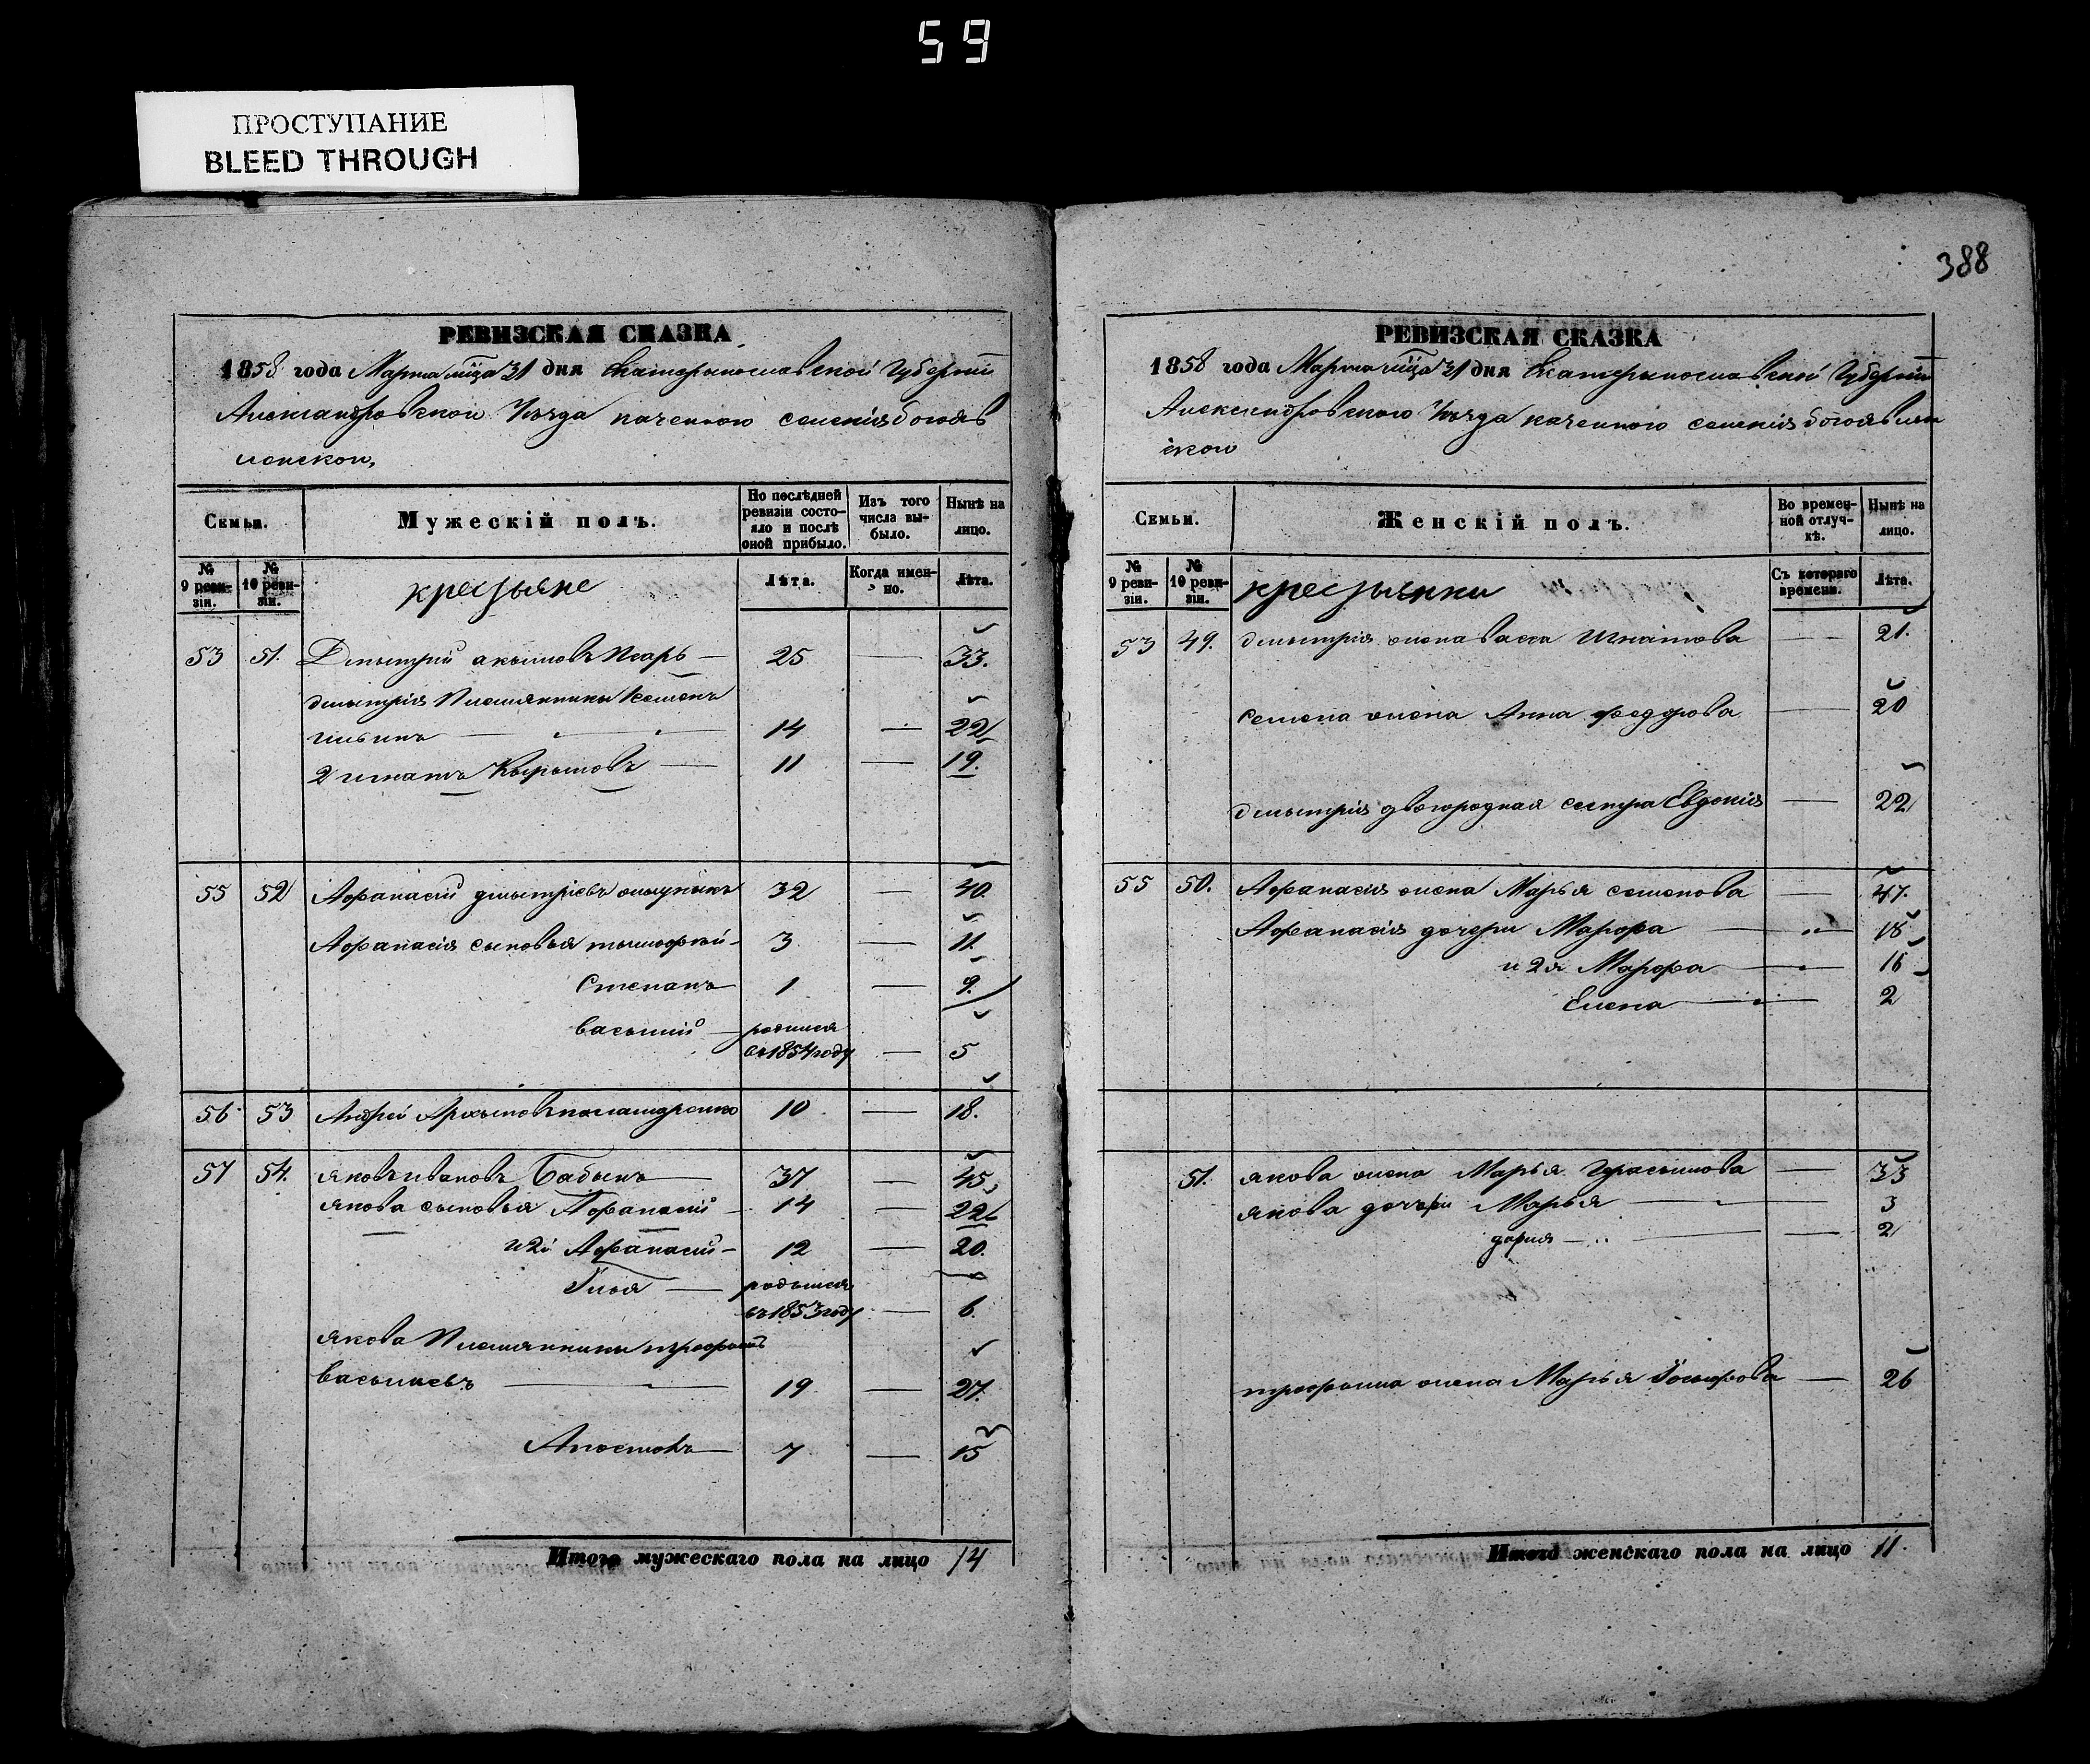 59
ПРОСТУПАНИЕ
BLEED THROUGH
РЕВИЗСКАЯ СКАЗКА
1858 года Марта мца 31 дня Екатерынославской Губерніи
Александровскои Уезда казенного селенія богояв
ленскои,
Семьи.
Мужескій полъ.
По послѣдней ревизіи состояло и послѣ оной прибыло.
Изъ того числа выбыло.
Нынѣ на лицо.
№ 9 ревизіи.
№ 10 ревизіи.
крестьяне
Лѣта.
Когда именно.
Лѣта.
53 51. Дмытрий акымовъ — 25 — 33.
дмытрія Племянникы Семенъ
ильинъ — 14 — 22
2 игнатъ Кырыловъ — 11 — 19.
55 52 Афанасий дмытріевъ 32 — 40.
Афанасія сыновья тымофей — 3 — 11.
Степанъ 1 — 9.
васылий — родился
въ 1854 году — 5
56 53 Андрей Архыповъ 10 — 18.
57 54. яковъ ивановъ Бабынъ — 37 — 45,
якова сыновья Афанасий — 14 — 22
и 2й Афанасий — 12 — 20.
Илья — родылся
въ 1853 году — 6.
якова Племянникы трофымъ
васылиевъ — 19 — 27.
Апостолъ — 7 — 15
Итого мужескаго пола на лицо 14
388
РЕВИЗСКАЯ СКАЗКА
1858 года Марта мца 31 дня Екатерынославской Губерніи
Александровского Уезда казенного селенія богоявлен
ского
Семьи.
Женскій полъ.
Во временной отлучкѣ.
Нынѣ на лицо.
№ 9 ревизіи.
№ 10 ревизіи.
крестьянки
Съ котораго времени.
Лѣта.
53 49. дмытрия жена васа Игнатова — 21.
семена жена Анна федорова — 20
дмытрія двоюродная сестра Евдокія — 22
55 50. Афанасія жена Марья семенова — 47.
Афанасія дочери Марфа — 18
и 2я Марфа — 16
Елена — 2
51. якова жена Марья Герасымова — 33
якова дочери Марья — 3
дария — 2
трофыма жена Марья Іосыфова — 26
Итого женскаго пола на лицо 11.